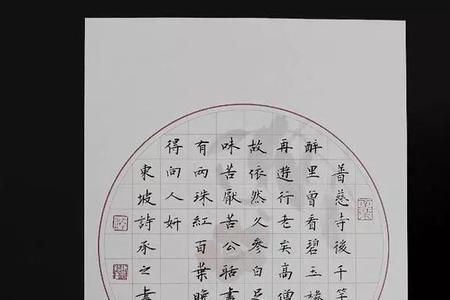 普慈寺後千竿
醉里曾看碧玉
再遊行老矣高僧
故依然久參白足
味苦厭苦公聒晝
有兩珠紅百葉晚
得向人妍
東坡詩承之書